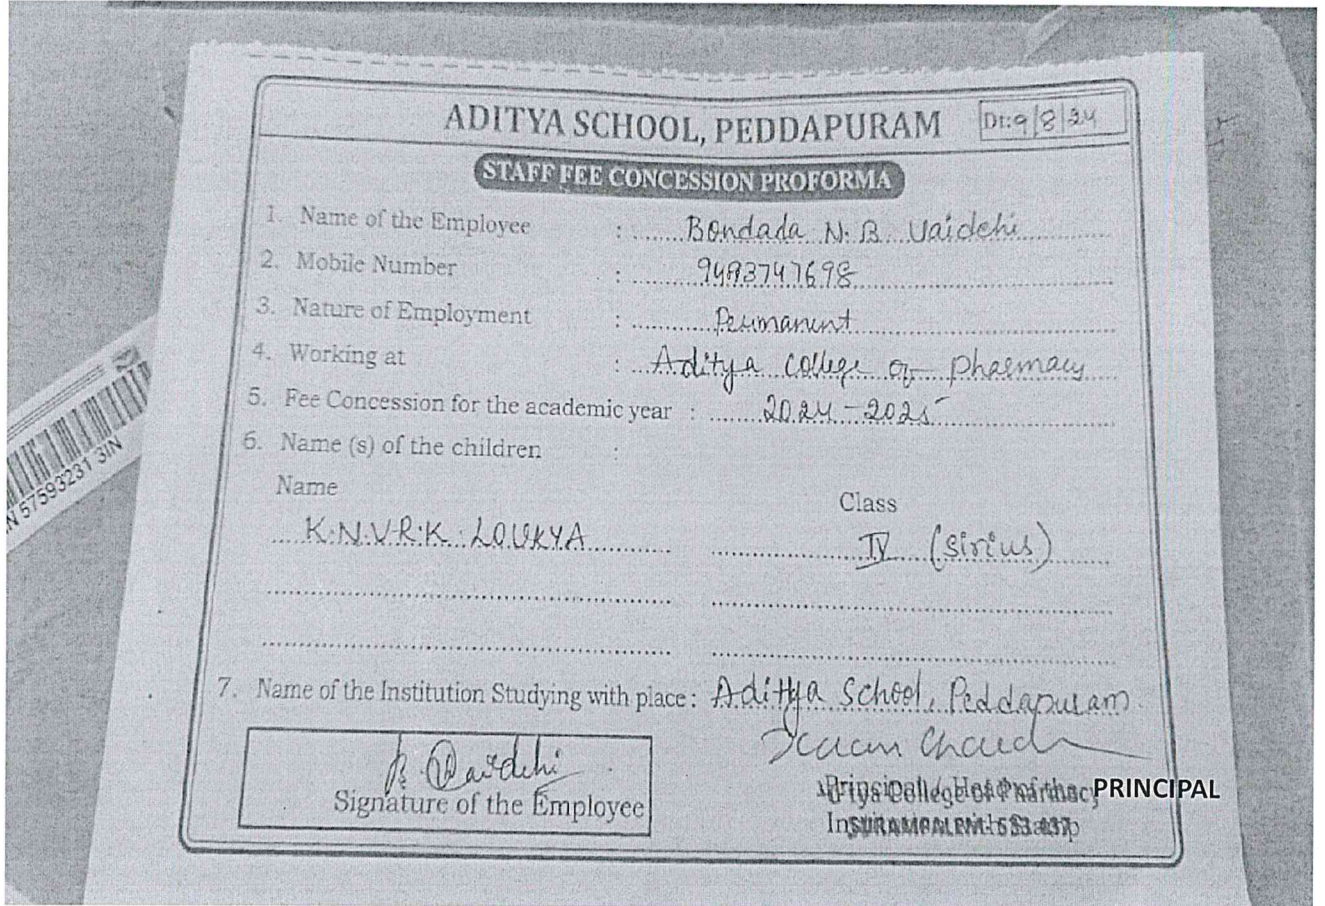 ADITYA SCHOOL, PEDDAPURAM Dt:9/8/24
STAFF FEE CONCESSION PROFORMA
1. Name of the Employee : Bondada N.B. Vaidehi
2. Mobile Number :
3. Nature of Employment : Permanent
4. Working at : Aditya College of Pharmacy
5. Fee Concession for the academic year : 2024-2025
6. Name (s) of the children :
Name Class
K.N.V.R.K. LOUKYA IV (Sirius)
7. Name of the Institution Studying with place : Aditya School, Peddapuram
B. Vaidehi
Signature of the Employee
PRINCIPAL
SURAMPALEM- 533 437
N 57593231 3IN